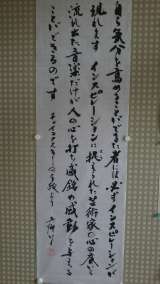 自ら気分を高めることができた者には必ずインスピレーションが
現れます インスピレーションに捉えられた芸術家の心の底から
流れ出た音楽だけが人の心を打ち感銘や感動を与える
ことができるのです
チャイコフスキーの手紙より